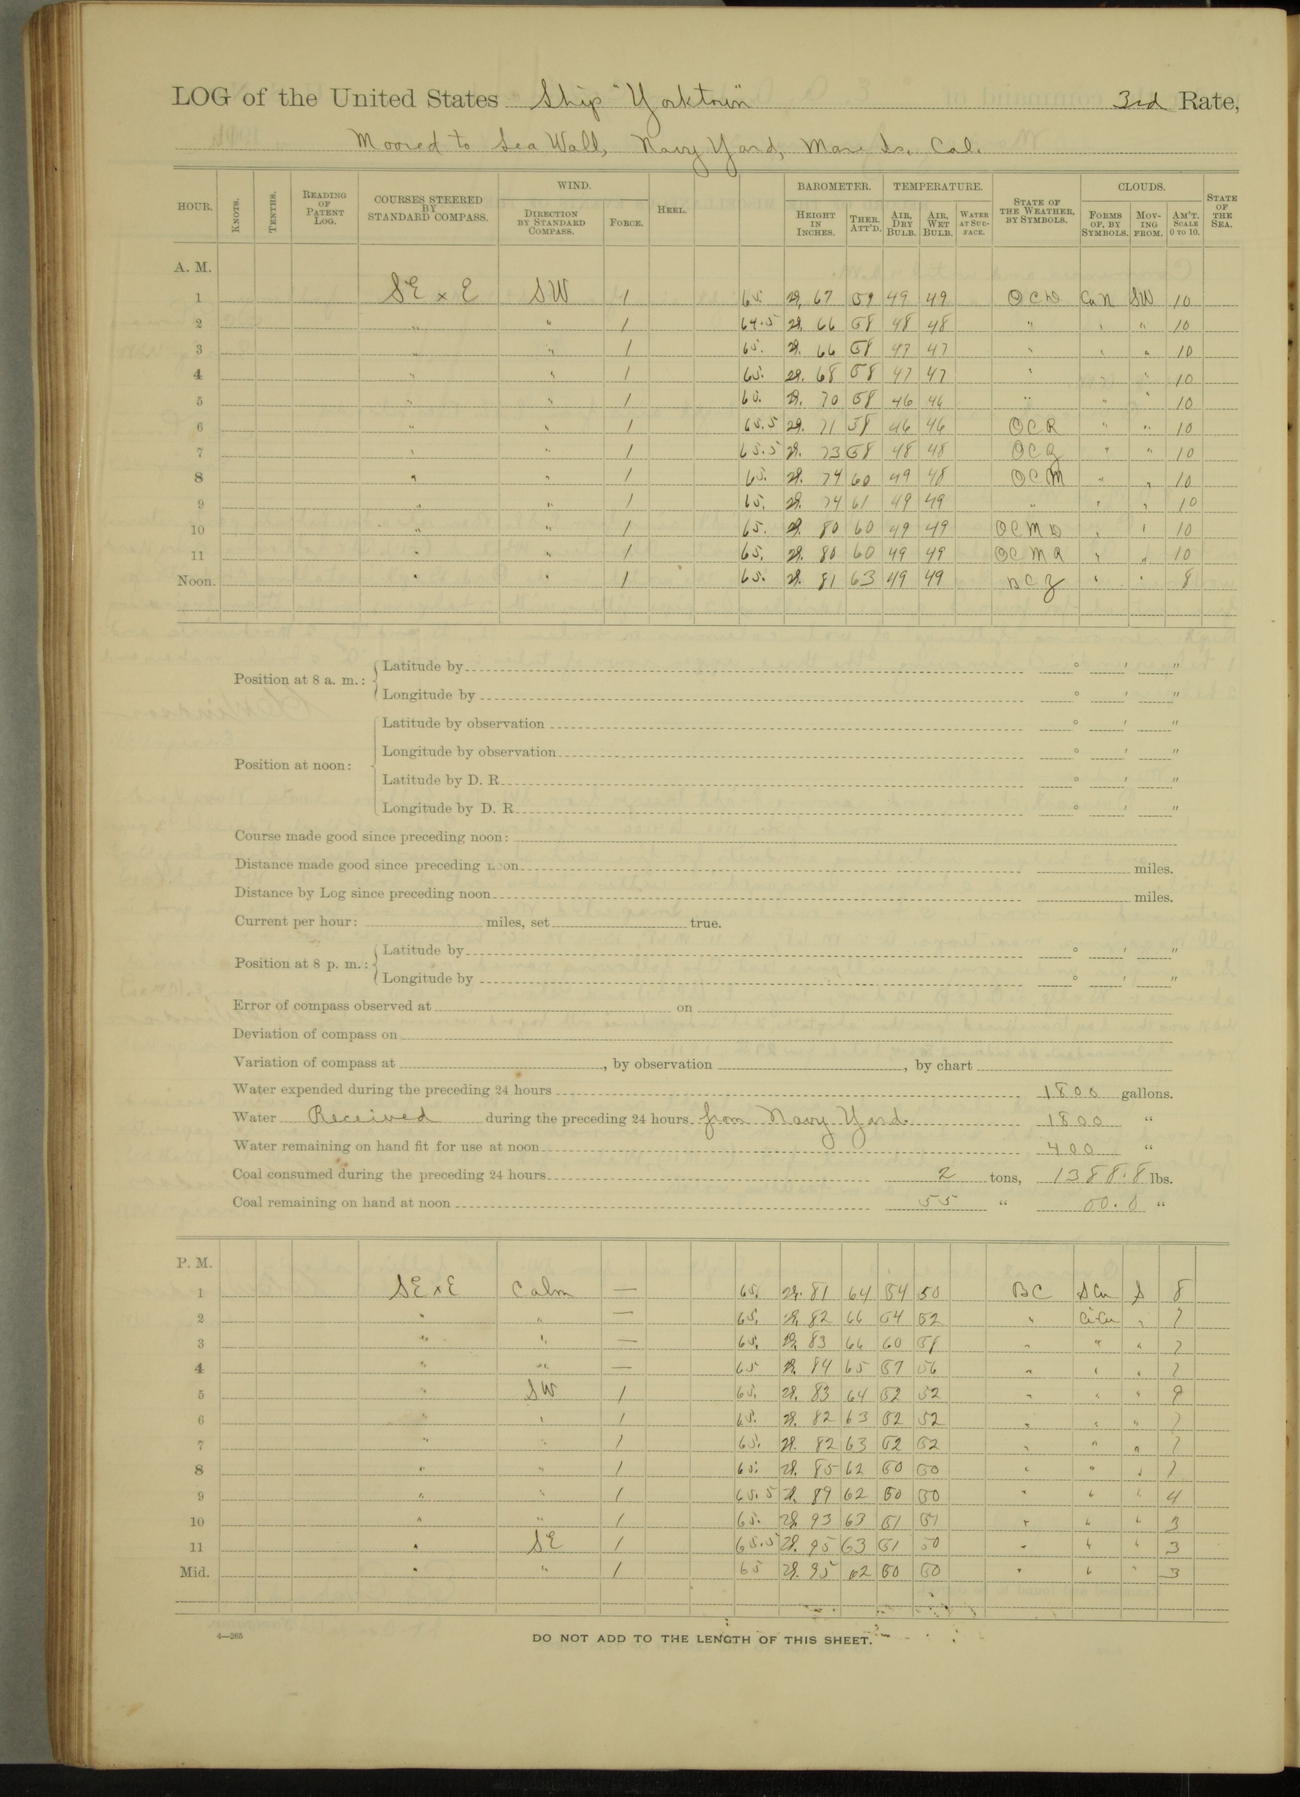 LOG of the United States Ship "Yorktown" 3rd Rate,
Moored to Sea Wall, Navy Yard, Mare Is. Cal.
HOUR. KNOTS. TENTHS. READING OF PATENT LOG. COURSES STEERED BY STANDARD COMPASS. WIND. DIRECTION BY STANDARD COMPASS. FORCE. HEEL. BAROMETER. HEIGHT IN INCHES. THER. ATT'D. TEMPERATURE. AIR, DRY BULB. AIR, WET BULB. WATER AT SUR-FACE. STATE OF THE WEATHER, BY SYMBOLS. CLOUDS. FORMS OF, BY SYMBOLS. MOV-ING FROM. AM'T. SCALE 0 TO 10. STATE OF THE SEA.
A. M.
1 SE x E SW 1 65. 29. 67 59 49 49 OCD CuN SW 10
2 " " 1 64.5 29. 66 58 48 48 " " " 10
3 " " 1 65. 29. 66 58 47 47 " " " 10
4 " " 1 65. 29. 68 58 47 47 " " " 10
5 " " 1 65. 29. 70 58 46 46 " " " 10
6 " " 1 65.5 29. 71 58 46 46 OCR " " 10
7 " " 1 65.5 29. 73 58 48 48 OCZ " " 10
8 " " 1 65. 29. 74 60 49 48 OCM " " 10
9 " " 1 65. 29. 74 61 49 49 " " " 10
10 " " 1 65. 29. 80 60 49 49 OCMD " " 10
11 " " 1 65. 29. 80 60 49 49 OCMR " " 10
Noon. " " 1 65. 29. 81 63 49 49 BCZ " " 8
Position at 8 a. m.: Latitude by ° ′ ″
Longitude by ° ′ ″
Position at noon: Latitude by observation ° ′ ″
Longitude by observation ° ′ ″
Latitude by D. R. ° ′ ″
Longitude by D. R. ° ′ ″
Course made good since preceding noon:
Distance made good since preceding noon miles.
Distance by Log since preceding noon miles.
Current per hour: miles, set true.
Position at 8 p. m.: Latitude by ° ′ ″
Longitude by ° ′ ″
Error of compass observed at on
Deviation of compass on
Variation of compass at , by observation , by chart
Water expended during the preceding 24 hours 1800 gallons.
Water Received during the preceding 24 hours from Navy Yard. 1800 "
Water remaining on hand fit for use at noon 400 "
Coal consumed during the preceding 24 hours 2 tons, 1388.8 lbs.
Coal remaining on hand at noon 55 " 00.0 "
P. M.
1 SE x E Calm — 65. 29. 81 64 54 50 BC SCu S 8
2 " " — 65. 29. 82 66 54 52 " CiCu " 7
3 " " — 65. 29. 83 66 60 58 " " " 7
4 " " — 65 29. 84 65 57 56 " " " 7
5 " SW 1 65. 29. 83 64 52 52 " " " 9
6 " " 1 65. 29. 82 63 52 52 " " " 7
7 " " 1 65. 29. 82 63 52 52 " " " 7
8 " " 1 65. 29. 85 62 50 50 " " " 7
9 " " 1 65.5 29. 89 62 50 50 " " " 4
10 " " 1 65. 29. 93 63 51 51 " " " 3
11 " SE 1 65.5 29. 95 63 51 50 " " " 3
Mid. " " 1 65 29. 95 62 50 50 " " " 3
4—265
DO NOT ADD TO THE LENGTH OF THIS SHEET.